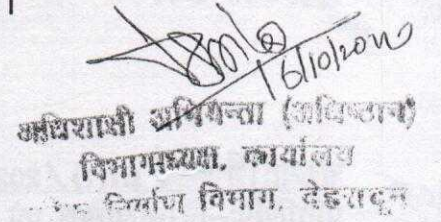 16/10/2020
अधिशासी अभियन्ता (अधिष्ठान)
विभागाध्यक्ष, कार्यालय
निर्माण विभाग, देहरादून